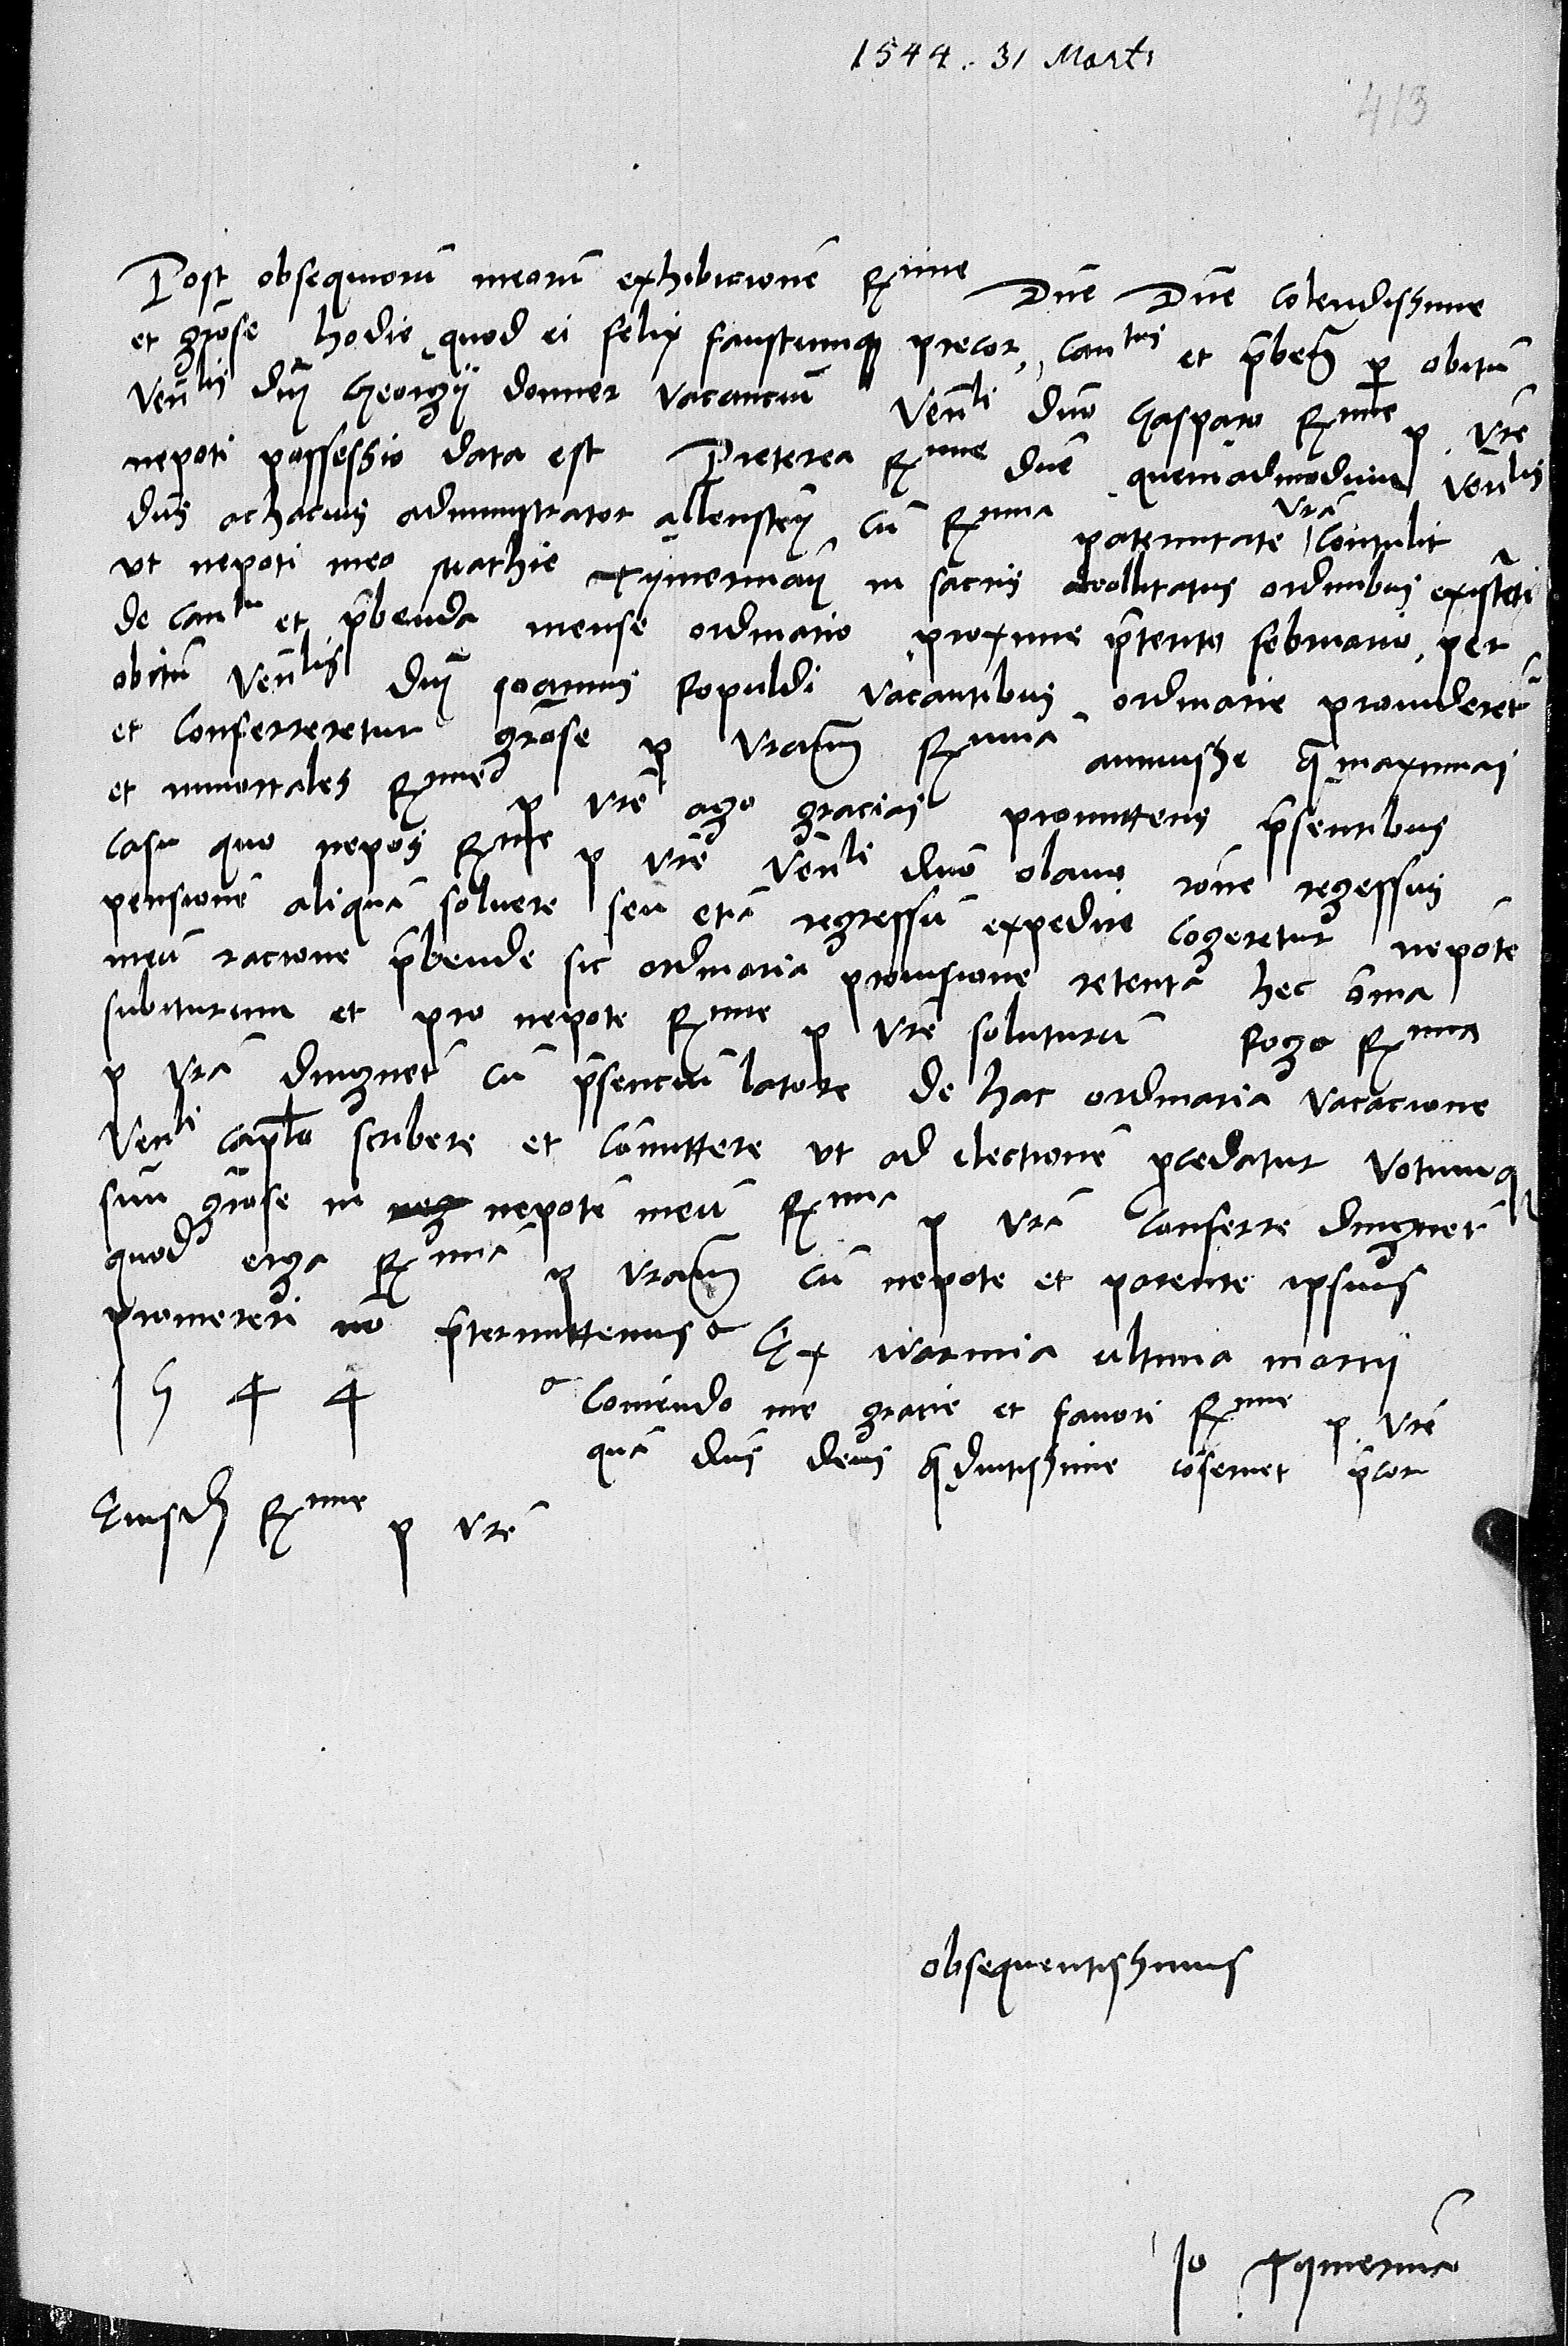 1544. 31 Marti
413
Post obsequiorū meorū exhibicionē Rme Dne Dne colendissime
et grōse hodie quod ei felix faustumq precor, cantus et p̄beⁿ p obitū
Venlis dnī Georgij donner vacanciū Venli dno Casparo Rme p. vrē
nepoti possessio data est Preterea Rme dnē quemadmodum venlis
dns achacius administrator allensteÿ cū Rma paternitate vrā contulit
vt nepoti meo Mathie Tymermaÿ in sacris accollitatus ordinibus existēti
de Cantu et p̄benda mense ordinario proxime p̄terito februario, per
obitū Venlis dnī Joannis Ropuldi vacantibus ordinarie prouideret̄
et conferreretur grōse p vram Rma annuisse q̄ maximas
et immortales Rme p vrē ago gracias promittens p̄sentibus
casu quo nepos Rme p vrē Venli dno olauo rōne regessus
pensionē aliquā soluere seu etiā regressū expedire cogeretur nepotē
meū racione p̄bende sic ordinaria prouisione retentā hec oīa
subiturum et pro nepote Rme p vrē soluturū Rogo Rma
p vrā dingnet̄ cū p̄senciū latore de hac ordinaria vacacione
Venli caplo scribere et cōmittere vt ad electionē pcedatur votumq
suū grōse in nepotē meū Rma p vrā conferre dingnet̄
quod erga Rmā p vram cū nepote et parente ipsius
promereri nō p̄termittemus Ex warmia ultima marcij
1544 Comēndo me gracie et fauori Rme p. vrē
quā dns deus q̄ diutissime cōseruet p̄cor
Eiusd̄ Rme p vrē
obsequentissimus
Jo Tymermā